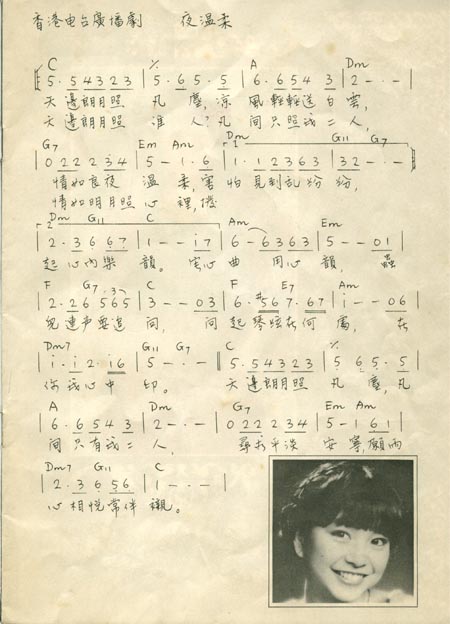 香港电台廣播劇 夜温柔
C ٪ A Dm
5·5 4 3 2 3 | 5·6 5·5 | 6·6 5 4 3 | 2 - · - |
天邊朗月照 凡塵,凉風輕輕送白雲,
天邊朗月照 誰人?凡間只照我二人,
G7 Em Am Dm G11 G7
0 2 2 2 3 4 | 5 - 1·6 | 1·1 2 3 6 3 | 3 2 - · - |
情如良夜 温柔,害怕見到乱紛紛,
情如明月照心裡,
Dm G11 C Am Em
2·3 6 6 7 | 1 - - i 7 | 6 - 6 3 6 3 | 5 - - 0 1 |
起心內樂韻。 心曲 用心韻, 蟲
F G7 F E7 Am
2·2 6 5 6 5 | 3 - - 0 3 | 6·#5 6 7·6 7 | i - - 0 6 |
兒連声要追问, 问起琴弦在何處, 在
Dm7 G11 G7 C ٪
i·i 2·i 6 | 5 - · - | 5·5 4 3 2 3 | 5 6 5·5 |
你我心中印。 天邊朗月照凡塵,凡
A Dm G7 Em Am
6·6 5 4 3 | 2 - · - | 0 2 2 2 3 4 | 5 - 1 6 1 |
间只有我二人, 尋求平淡安寧願两
Dm7 G11 C
2·3 6 5 6 | 1 - · - |
心相悦常伴襯。